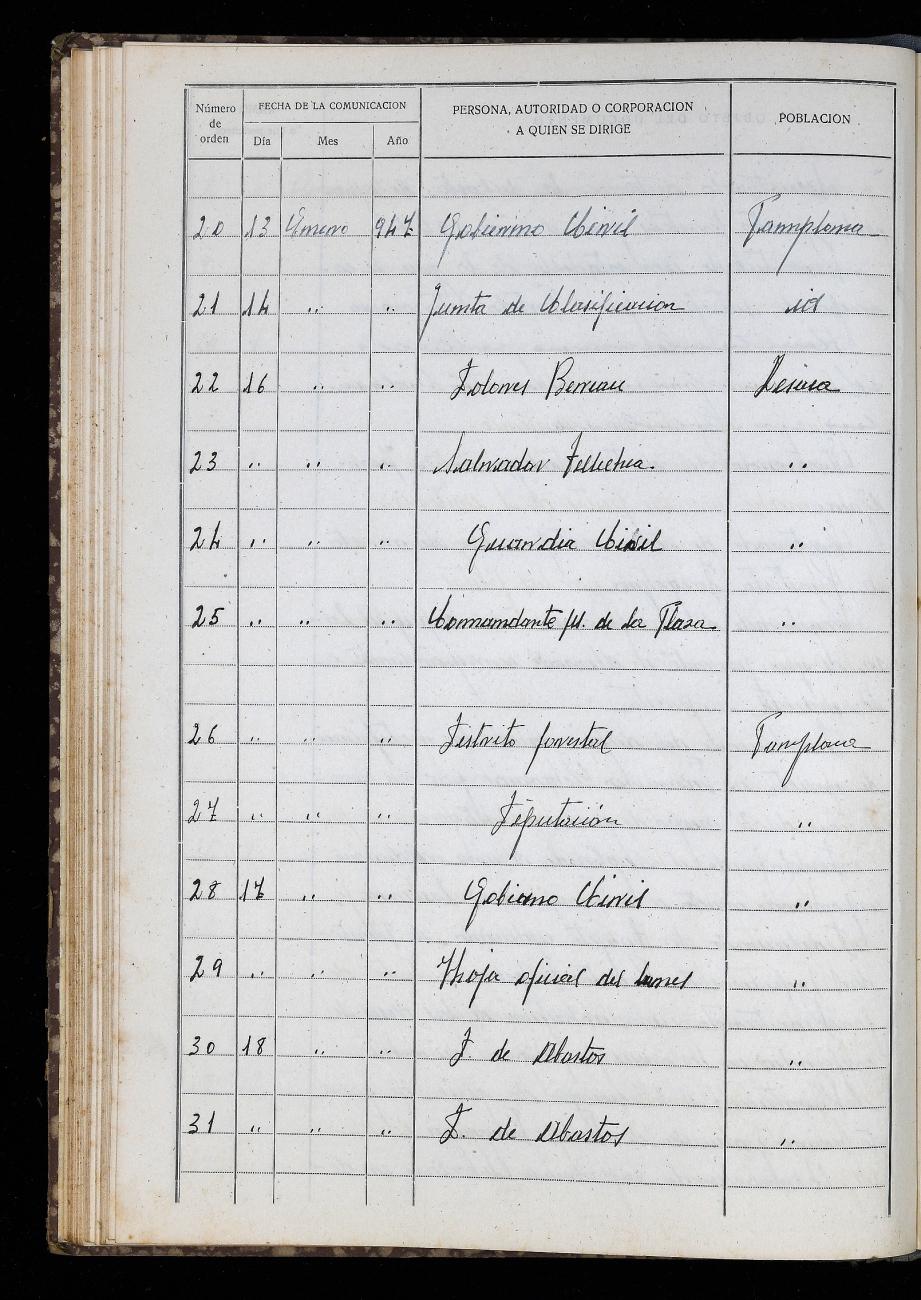 Número de orden | FECHA DE LA COMUNICACION | PERSONA, AUTORIDAD O CORPORACION A QUIEN SE DIRIGE | POBLACIÓN
Día | Mes | Año
20 13 Enero 947 Gobierno Civil Pamplona
21 14 " " Junta de Clasificacion id
22 16 " " Dolores Berrau Lesaca
23 " " " Salvador Tellechea. "
24 " " " Guardia Civil "
25 " " " Comandante M. de la Plaza "
26 " " " Distrito forestal Pamplona
27 " " " Diputación "
28 17 " " Gobierno Civil "
29 " " " Hoja oficial del lunes "
30 18 " " D. de Abastos "
31 " " " D. de Abastos "